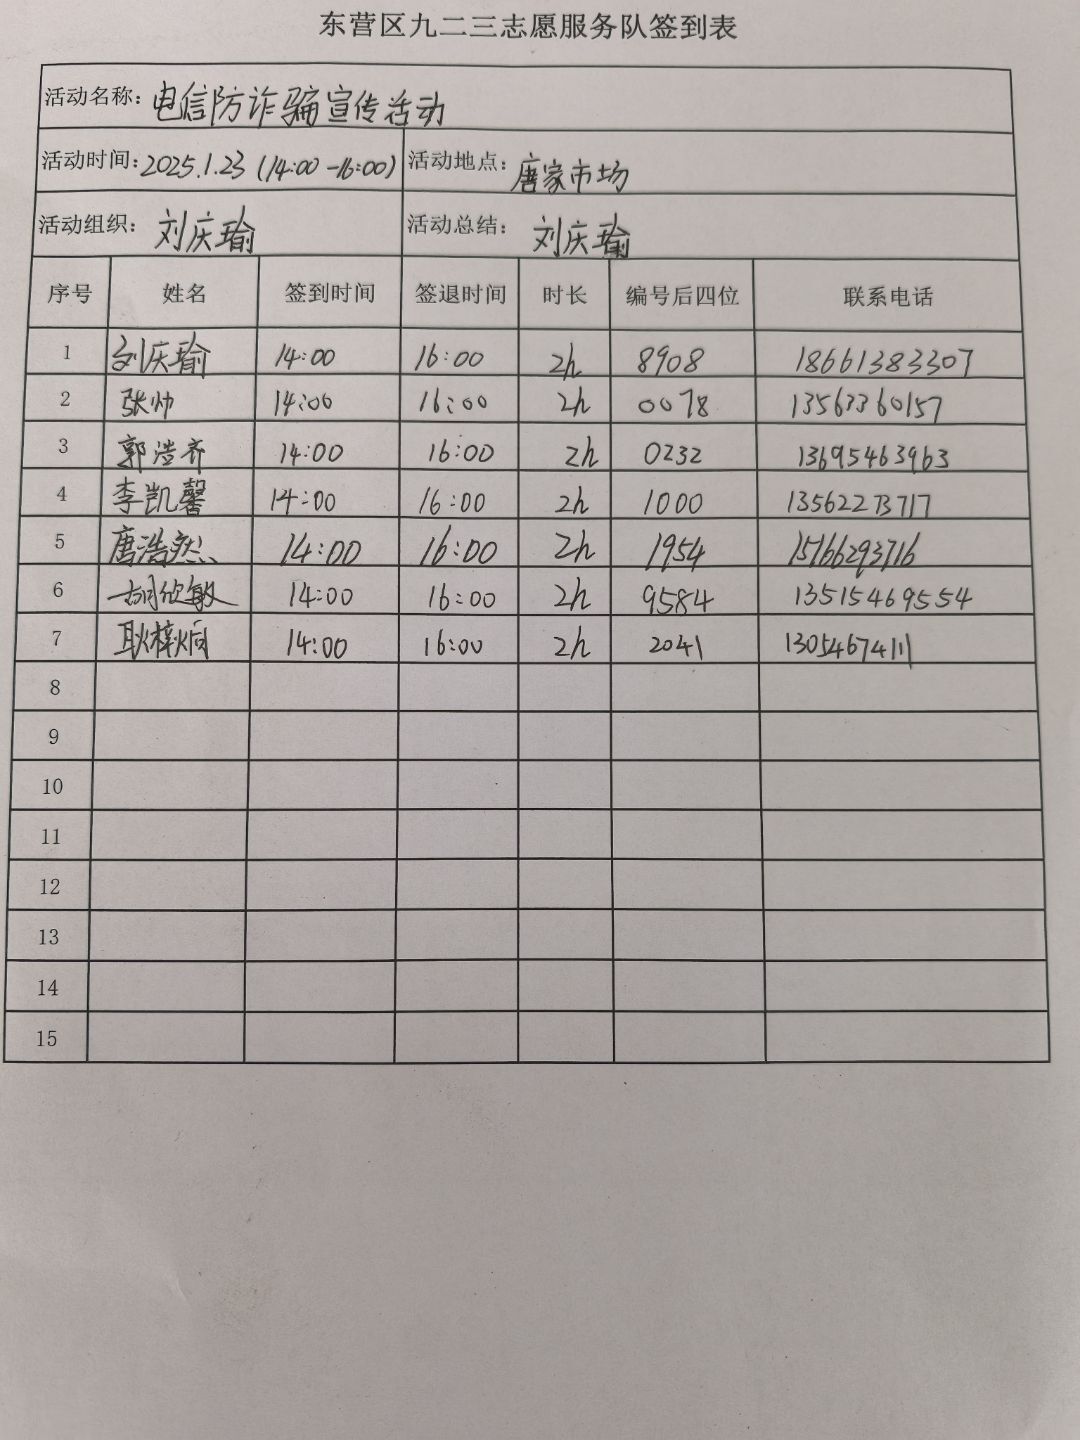 东营区九二三志愿服务队签到表
活动名称：电信防诈骗宣传活动
活动时间：2025.1.23（14:00-16:00） 活动地点：唐家市场
活动组织：刘庆瑜 活动总结：刘庆瑜
序号 姓名 签到时间 签退时间 时长 编号后四位 联系电话
1 刘庆瑜 14:00 16:00 2h 8908 18661383307
2 张帅 14:00 16:00 2h 0078 13563360157
3 郭浩齐 14:00 16:00 2h 0232 13695463963
4 李凯馨 14:00 16:00 2h 1000 13562273717
5 唐浩然 14:00 16:00 2h 1954 15166293716
6 胡欣敏 14:00 16:00 2h 9584 13515469554
7 耿梓炯 14:00 16:00 2h 2041 13054674111
8
9
10
11
12
13
14
15